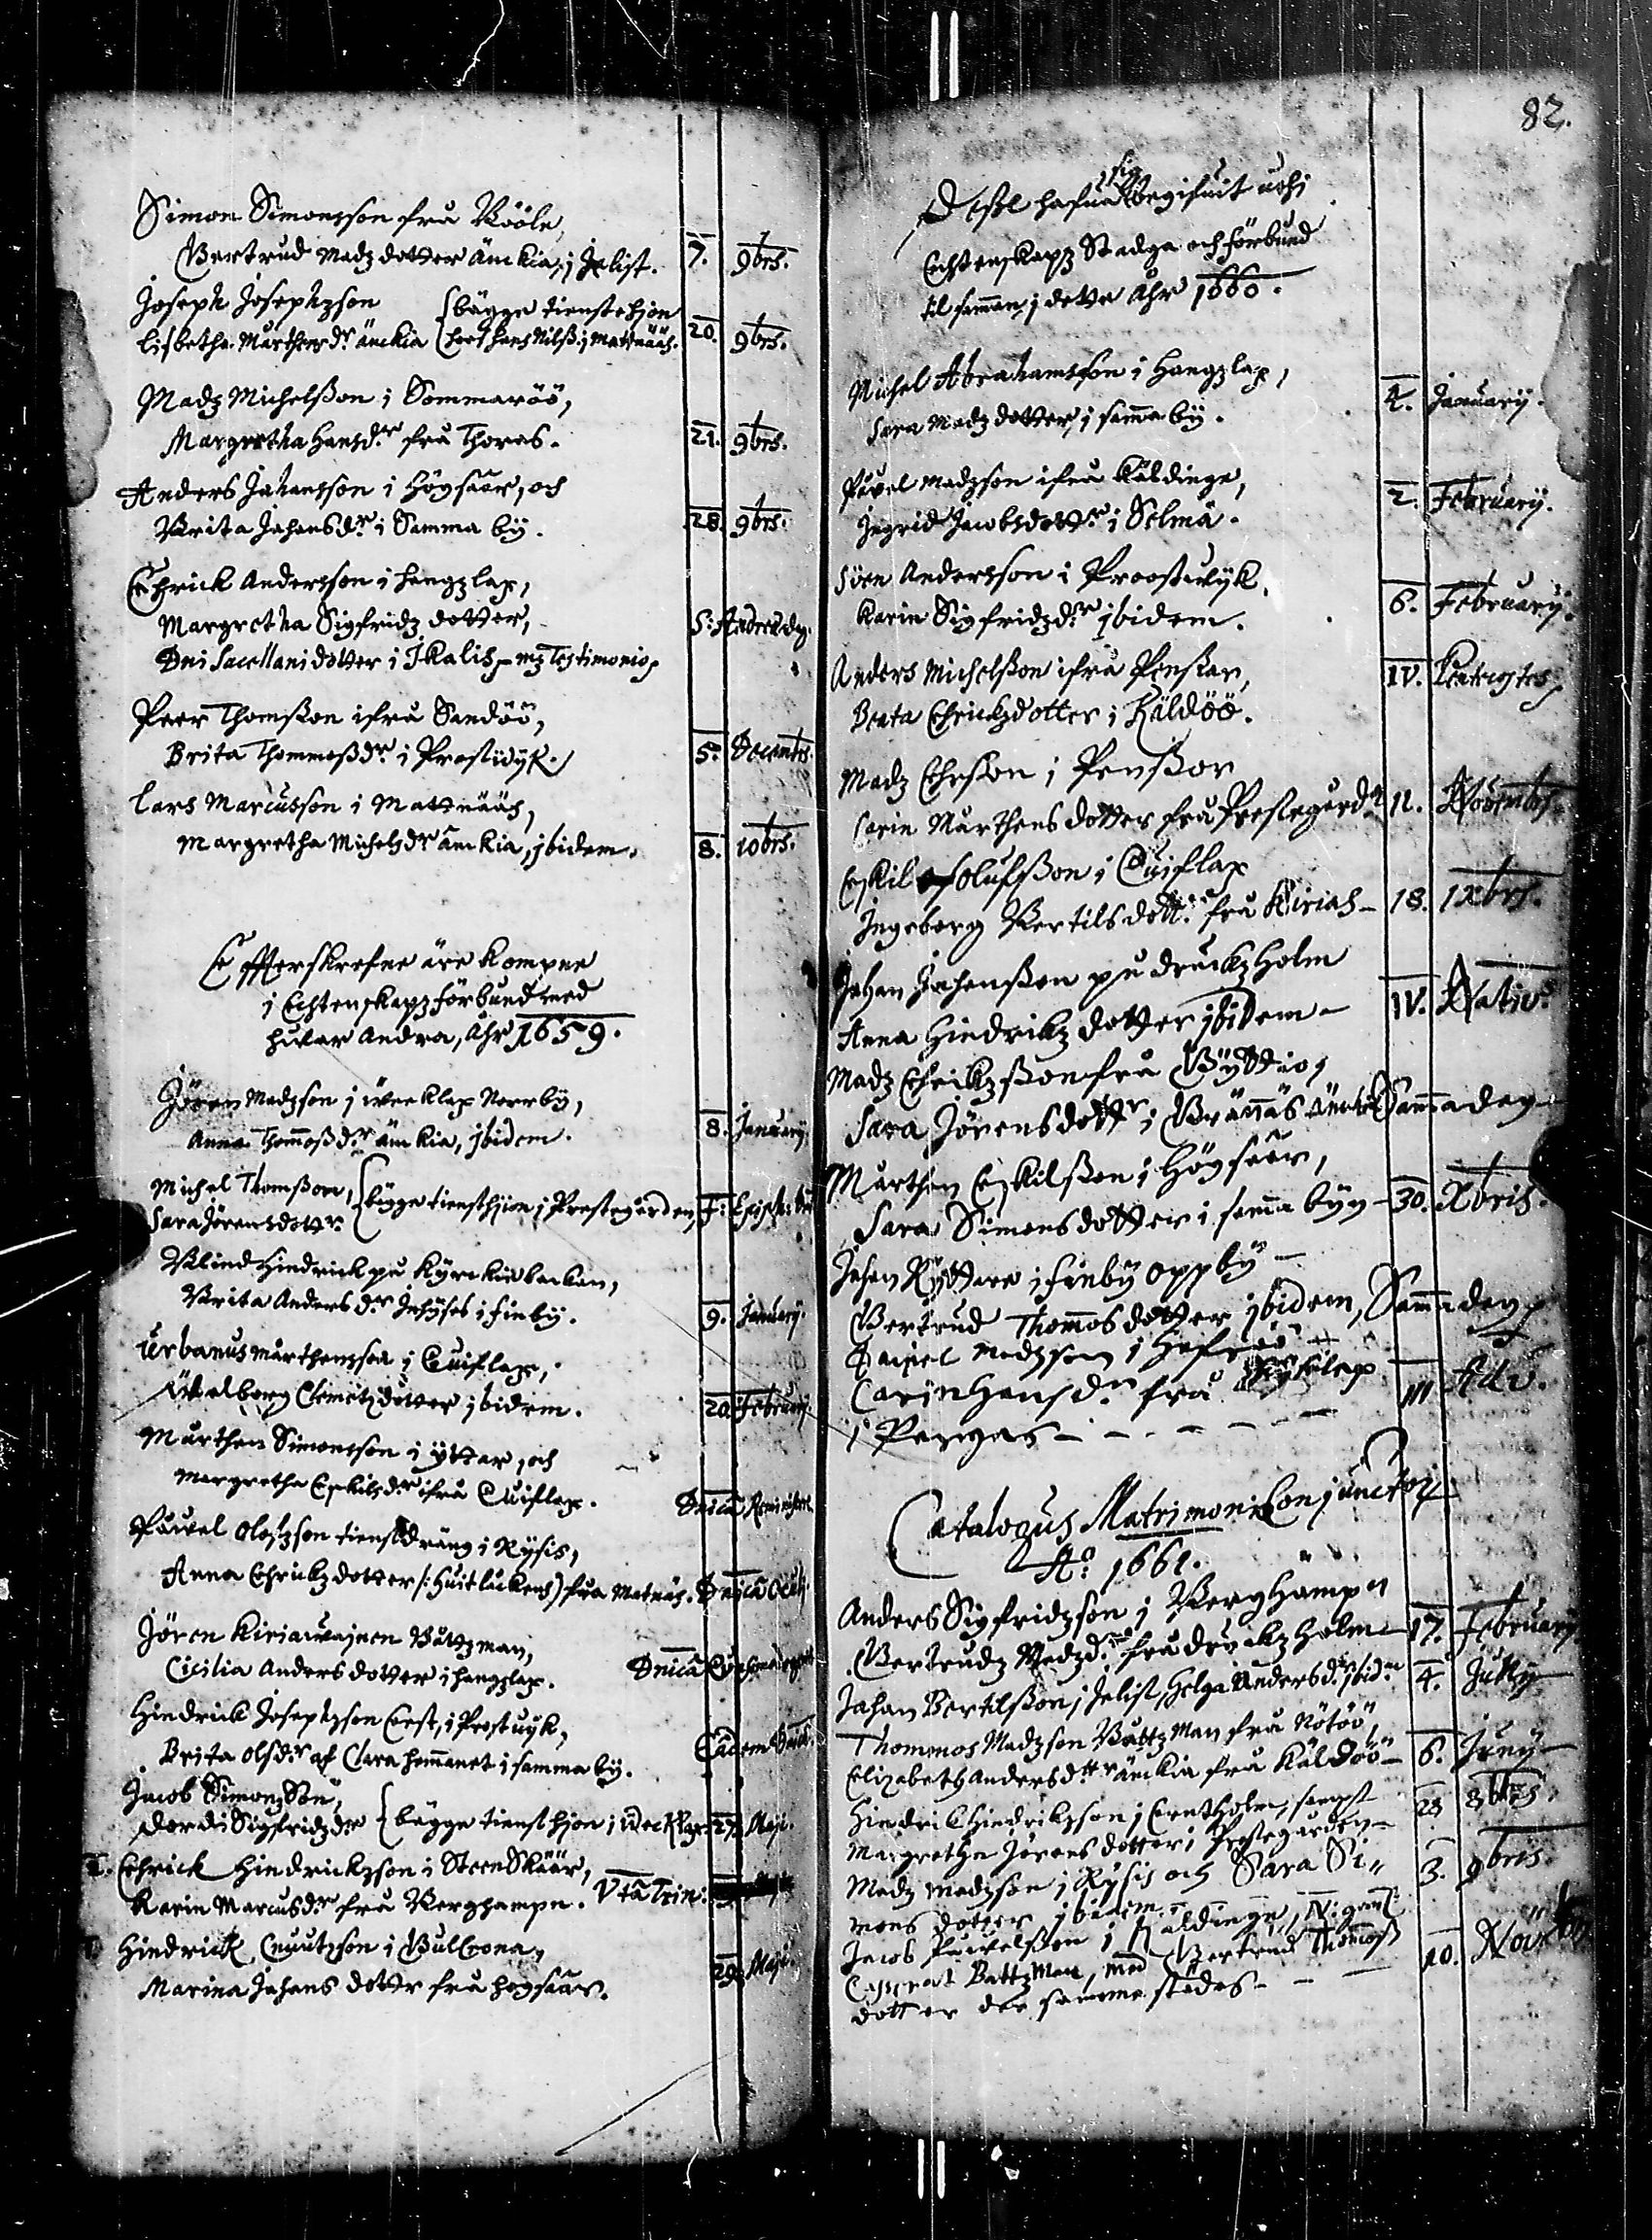 Simon Simonsson frå Bööle,
Gertrud Madz dotter änkia, i Jelist. 7. 9brs.
Joseph Josephzson {bägge tienstehjon
Lisbetha Mårthens dr änckia {hoos hans Nilß. i Mattnääs. 20. 9brs.
Madz Michelßon i Sommaröö,
Margretha Hansdr frå Thoras. 21. 9brs.
Anders Johansson i Högsåår, och
Brita Johansdr i Samma by. 28. 9brs.
Ehrick Andersson i Hengzlax,
Margretha Sigfridz dotter, S: Andreæ dag.
Dni Sacellani dotter i Ikalis, mz Testimonio,
Peer Thomßon ifrå Sandöö,
Brita Thommoßdr i Prostvijk. 5. Decembr.
Lars Marcusson i Mattnääs,
Margretha Michelsdr änckia, ibidem. 8. 10brs.
Effterskrefne äre kompne
i Echtenskapz förbund med
hvar Andra, Åhr 1659.
Jören Madzson i Wecklax Norrby,
Anna Thomoßdr änckia, ibidem. 8. January
Michel Thomßon, {bägge tiensthjon i Prestegården,
Sara Jörensdotter
Blind Hindrick på Kyrckiebacken,
Brita Anders dr Inhyses i Finby. 9. January.
Urbanus Mårthensson i Quiflax,
Wålborg Clemetz dotter ibidem. 20. February.
Mårthen Simonsson i ytter, och
Margretha Eskilsdr ifrå Quiflax. Dnica Reminiscere
Påvel Olofzson tienstdräng i Rysis,
Anna Ehrickz dotter (: Huitluckens) frå Matnäs. Dnica Oculi
Jören Kiriawainen Båtzman,
Cicilia Anders dotter i hangzlax. Dnica
Hindrick Josephzson Qvest, i Prostvijk,
Brita Olsdr af Clara hemmanet i samma by. Eadem Dnica.
Jacob Simonzson,
Dordi Sigfridzdr {bägge tiensthjon i 27. Maji.
Ehrick Hindrickzson i Steenskäär,
Karin Marcusdr frå Berghampn. Vta Trin:
Hindrick Cnuutzson i Gulkrona,
Marina Johans dotter frå högsåår. 29. Maji.
82.
Desse hafua sig begifuit uthi
Echtenskapz Stadga och förbund
til samman i dette Åhr 1660.
Michel Abrahamsson i Hangzlax,
Sara Madz dotter, i sama by. 2. January.
Påvel Madzson ifrå Käldinge,
Ingrid Jacobsdottr i Selmå. 2. February.
Sören Andersson i Proostvijk,
Karin Sigfridzdr ibidem. 6. February.
Anders Michelßon ifrå Penßar,
Beata Ehrickzdotter i Käldöö. IV. Pentecostes
Madz Ehrßon i Penßor
Carin Mårthens dotter frå Prestegården 11. Novembr.
Eskil Olufsßon i Quiflax
Ingeborg Bertilsdott: frå Kirias - 18. IXbrs.
Johan Johanßon på druckzholm
Anna Hindrikz dotter ibidem - IV. Nativ.
Madz Ehrikzßon frå
Sara Jörensdottr i Brännäs Samma dag
Mårthen Eskilßon i Högsåår,
Sara Simonsdotter i sama byn - 30. Xbris.
Johan Ryttare i Finby oppby -
Gertrud Thomos dotter ibidem, Samma dag
Daniel Madzson i Hafsöö
Carin Hansdr frå
i Pargas - - - - - - III Adv.
Catalogus Matrimoni Conjunctor
Ao 1661.
Anders Sigfridzson i Berghampn
Gertrudz Madzdr frå druckzholm 17. February
Johan Bertilsßon i Jelist, Helga Andersdr ibid. 4. July
Thommos Madzson Båttzman frå Nötöö,
Elizabeth Andersdr änckia frå Käldöö - 6. Juny
Hindrik Hindrikzson i Cretholm, sampt
Margretha Jörens dotter i Prestegården - 28 8brs.
Madz Madzson i Rysis och Sara Si-
mons dotter ibidem. 3. 9bris.
Jacob Påvelßon i Kaldinge,
Båttzman, med Gertrud Thomoß
dotter der samme stedes - - - 10. Novbr